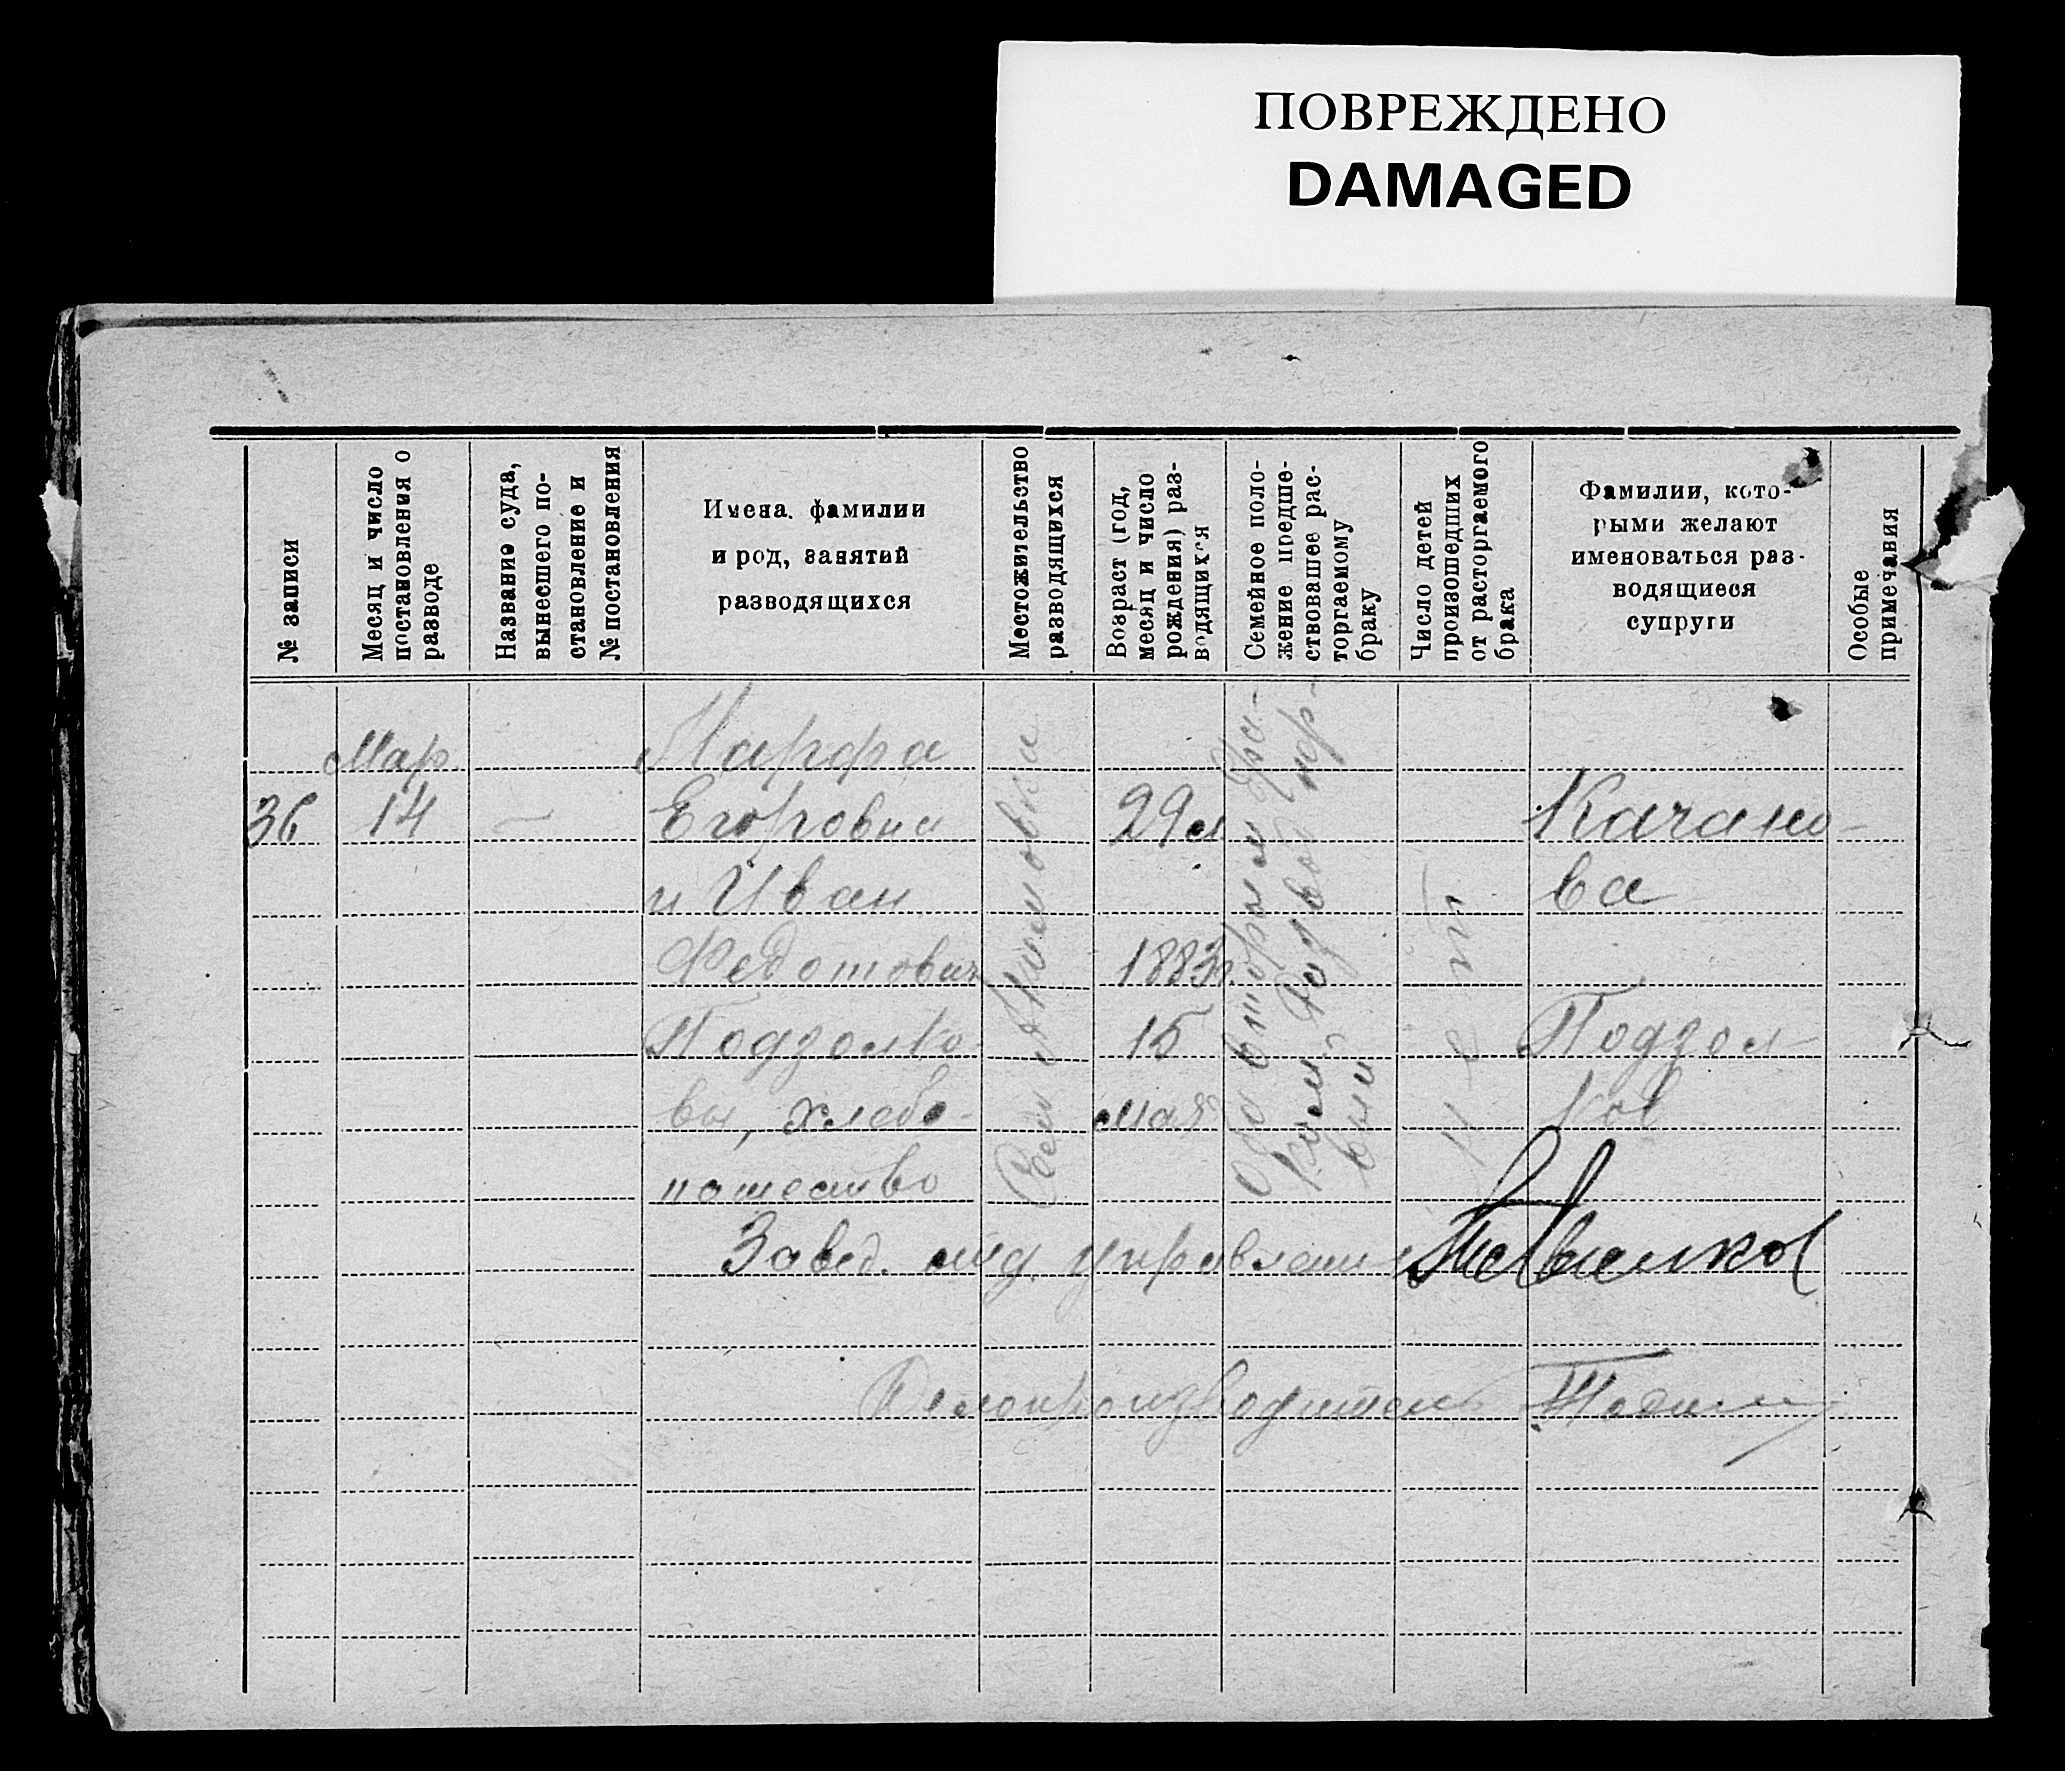 ПОВРЕЖДЕНО
DAMAGED
№ записи
Месяц и число
постановления о
разводе
Название суда,
вынесшего по-
становление и
№ постановления
Имена, фамилии
и род, занятий
разводящихся
Местожительство
разводящихся
Возраст (год,
месяц и число
рождения) раз-
водящихся
Семейное поло-
жение предше-
ствовавшее рас-
торгаемому
браку
Число детей
произошедших
от расторгаемого
брака
Фамилии, кото-
рыми желают
именоваться раз-
водящиеся
супруги
Особые
примечания
36
Мар
14
—
Марфа
Егоровна
и Иван
Федотович
Подзолко-
вы, хлебо-
пашество
Сел
29 л
1883 г.
15
мая
Оба вторым бра-
ком,
вый
нет
Качано-
ва
Подзол-
ков
Завед. управлени
Делопроизводитель